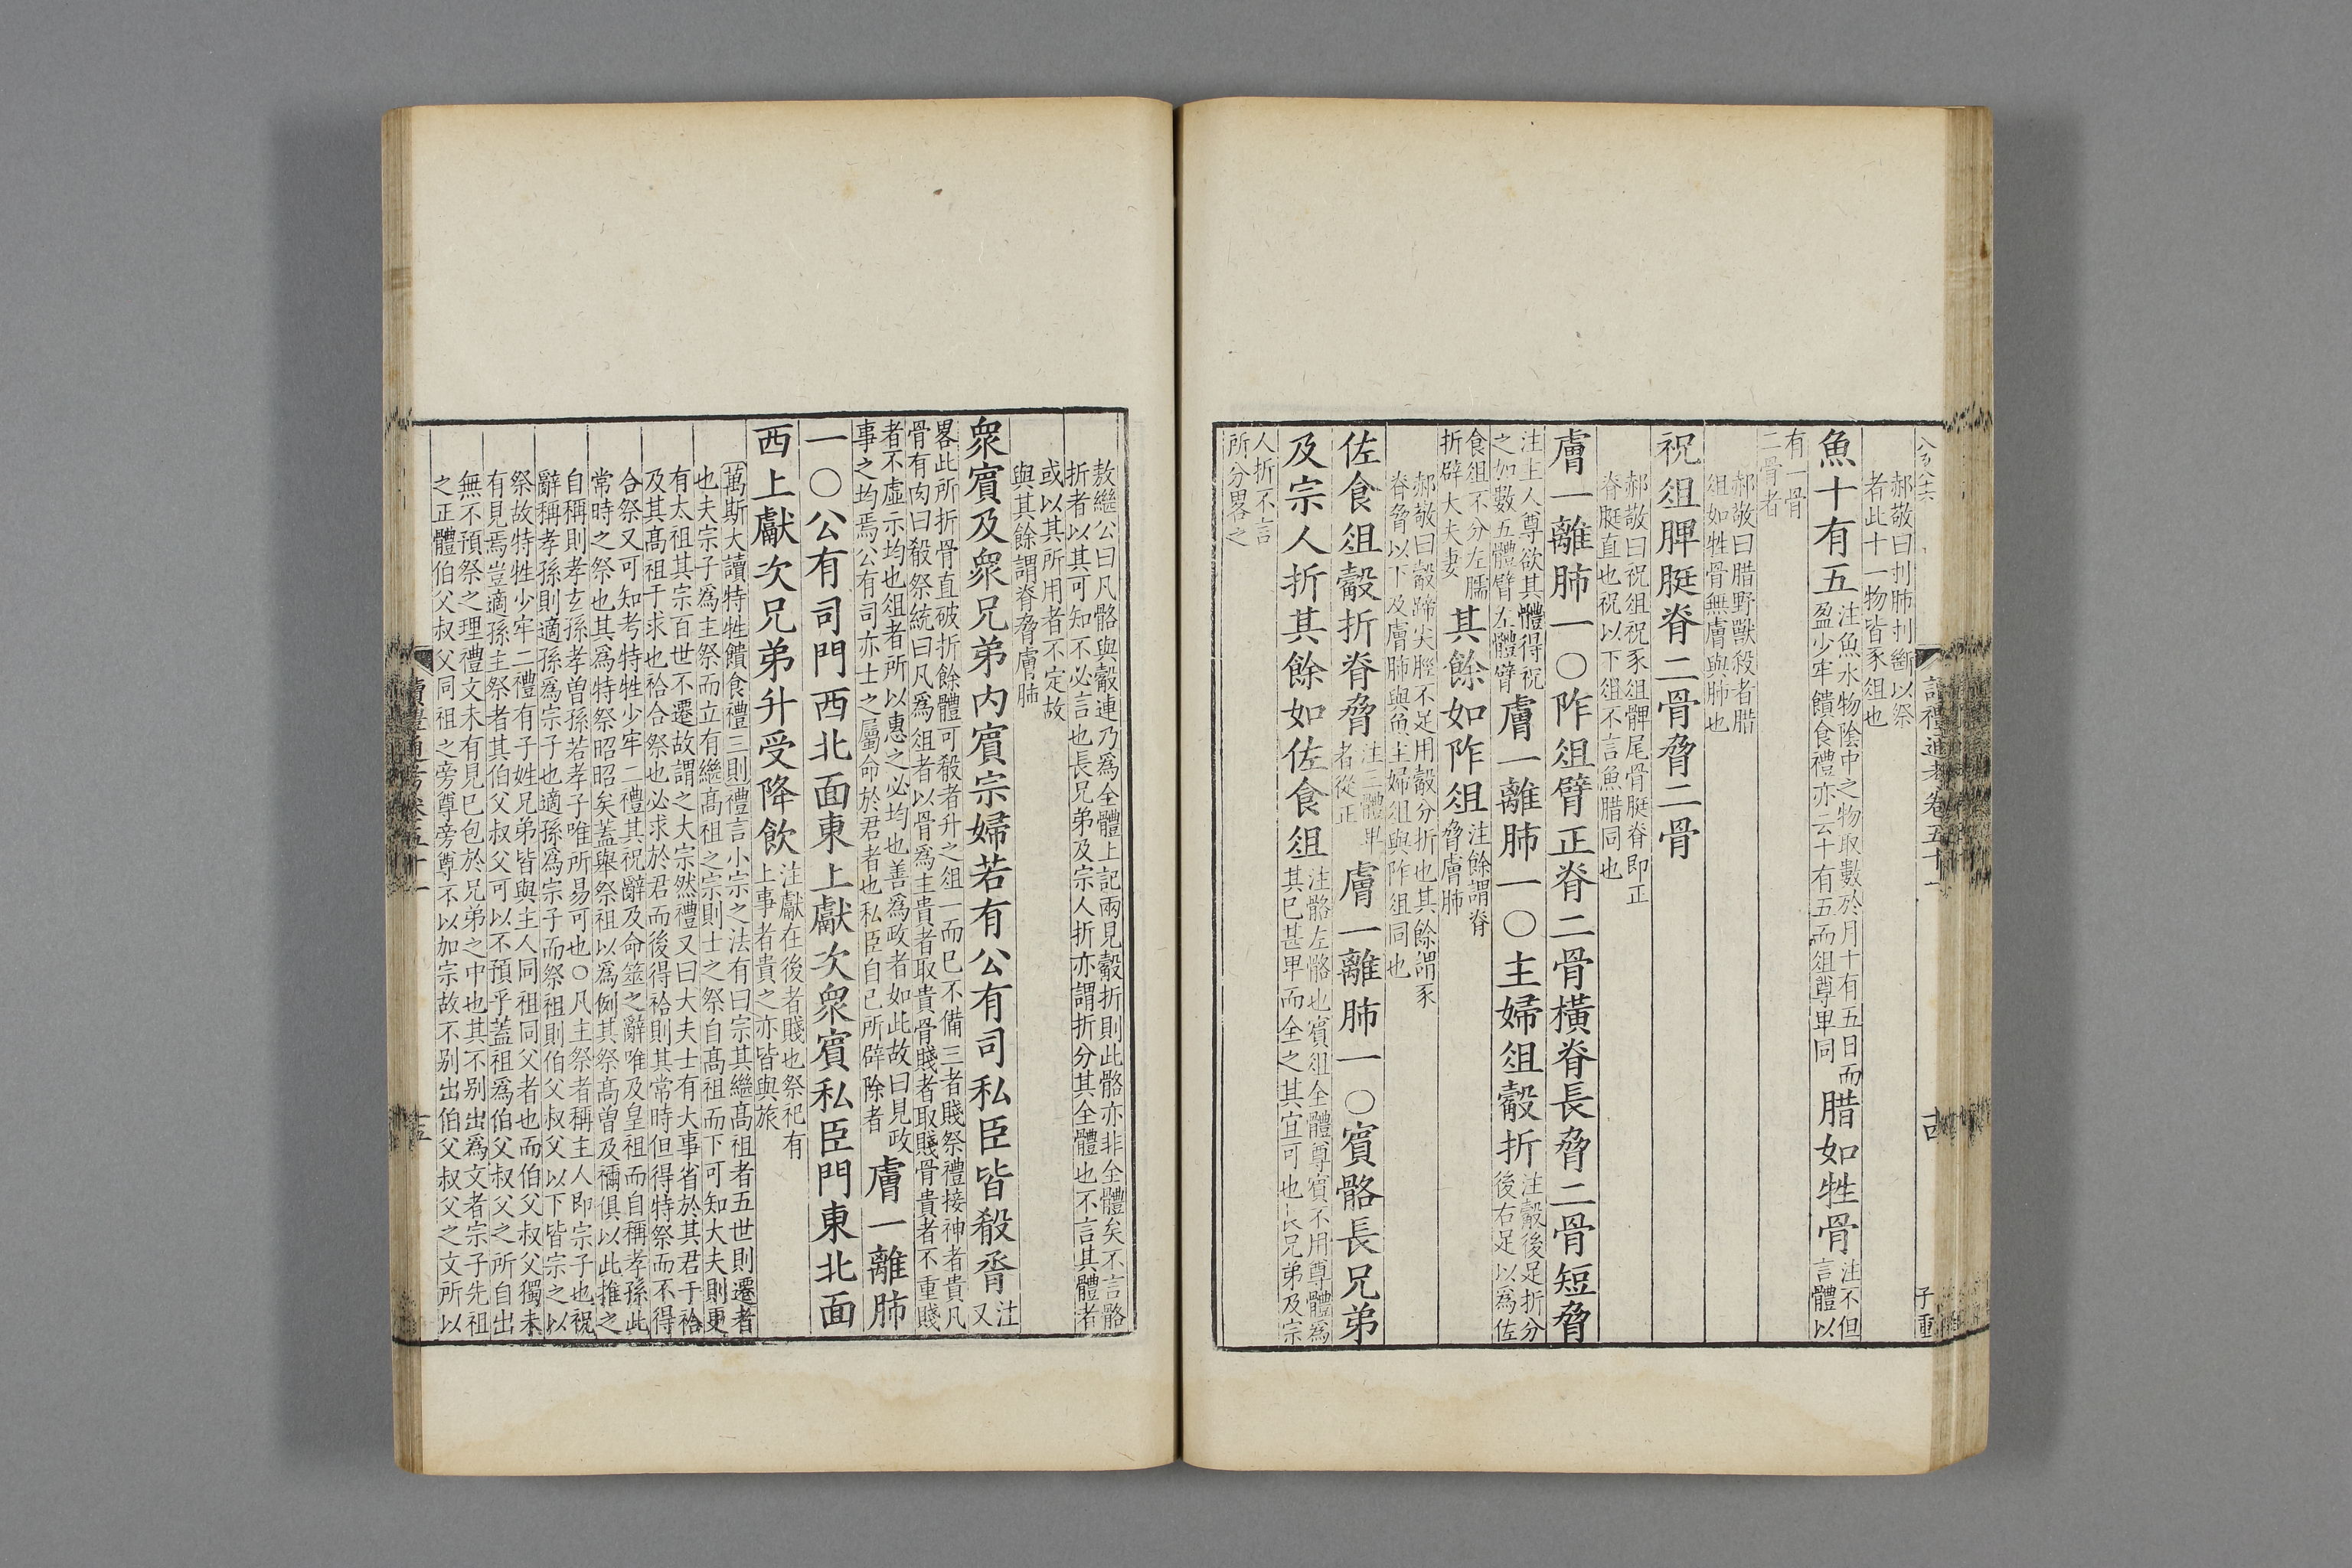 郝敬曰刌肺刌斷以祭
者此十一物皆豕俎也
魚十有五注魚水物陰中之物取數於月十有五日而
盈少牢饋食禮亦云十有五而俎尊卑同腊如牲骨注不但
言體以
有一骨
二骨者
郝敬曰腊野獸殺者腊
俎如牲骨無膚與肺也
祝俎脾脡脊二骨脅二骨
郝敬曰祝俎祝豕俎髀尾骨脡脊即正
脊脡直也祝以下俎不言魚腊同也
膚一離肺一〇阼俎臂正脊二骨橫脊長脅二骨短脅
注主人尊欲其體得祝
之如數五體臂左體臂膚一離肺一〇主婦俎觳折注觳後足折分
後右足以為佐
食俎不分左臑
折辟大夫妻其餘如阼俎注餘謂脊
脅膚肺
郝敬曰觳蹄尖脛不足用觳分折也其餘謂豕
脊脅以下及膚肺與魚主婦俎與阼俎同也
佐食俎觳折脊脅注三體卑
者從正膚一離肺一〇賓骼長兄弟
及宗人折其餘如佐食俎注骼左骼也賓俎全體尊賓不用尊體為
其已甚卑而全之其宜可也長兄弟及宗
人折不言
所分畧之
讀禮通考卷五十一
十四
子重
敖繼公曰凡骼與觳連乃為全體上記兩見觳折則此骼亦非全體矣不言骼
折者以其可知不必言也長兄弟及宗人折亦謂折分其全體也不言其體者
或以其所用者不定故
與其餘謂脊脅膚肺
衆賓及衆兄弟内賓宗婦若有公有司私臣皆殽脀注
又
畧此所折骨直破折餘體可殽者升之俎一而巳不備三者賤祭禮接神者貴凡
骨有肉曰殽祭統曰凡爲俎者以骨爲主貴者取貴骨賤者取賤骨貴者不重賤
者不虛示均也俎者所以惠之必均也善爲政者如此故曰見政
事之均焉公有司亦士之屬命於君者也私臣自己所辟除者膚一離肺
一〇公有司門西北面東上獻次衆賓私臣門東北面
西上獻次兄弟升受降飲注獻在後者賤也祭祀有
上事者貴之亦皆與旅
萬斯大讀特牲饋食禮三則禮言小宗之法有曰宗其繼髙祖者五世則遷者
也夫宗子為主祭而立有繼髙祖之宗則士之祭自髙祖而下可知大夫則更
有太祖其宗百世不遷故謂之大宗然禮又曰大夫士有大事省於其君干祫
及其髙祖于求也祫合祭也必求於君而後得祫則其常時但得特祭而不得
合祭又可知考特牲少牢二禮其祝辭及命筮之辭唯及皇祖而自稱孝孫此
常時之祭也其爲特祭昭昭矣蓋舉祭祖以爲例其祭髙曾及禰俱以此推之
自稱則孝玄孫孝曾孫若孝子唯所易可也〇凡主祭者稱主人即宗子也祝
辭稱孝孫則適孫爲宗子也適孫爲宗子而祭祖則伯父叔父以下皆宗之以
祭故特牲少牢二禮有子姓兄弟皆與主人同祖同父者也而伯父叔父獨未
有見焉豈適孫主祭者其伯父叔父可以不預乎蓋祖爲伯父叔父之所自出
無不預祭之理禮文未有見巳包於兄弟之中也其不别出爲文者宗子先祖
之正體伯父叔父同祖之旁尊旁尊不以加宗故不别出伯父叔父之文所以
讀禮通考卷五十一
十五